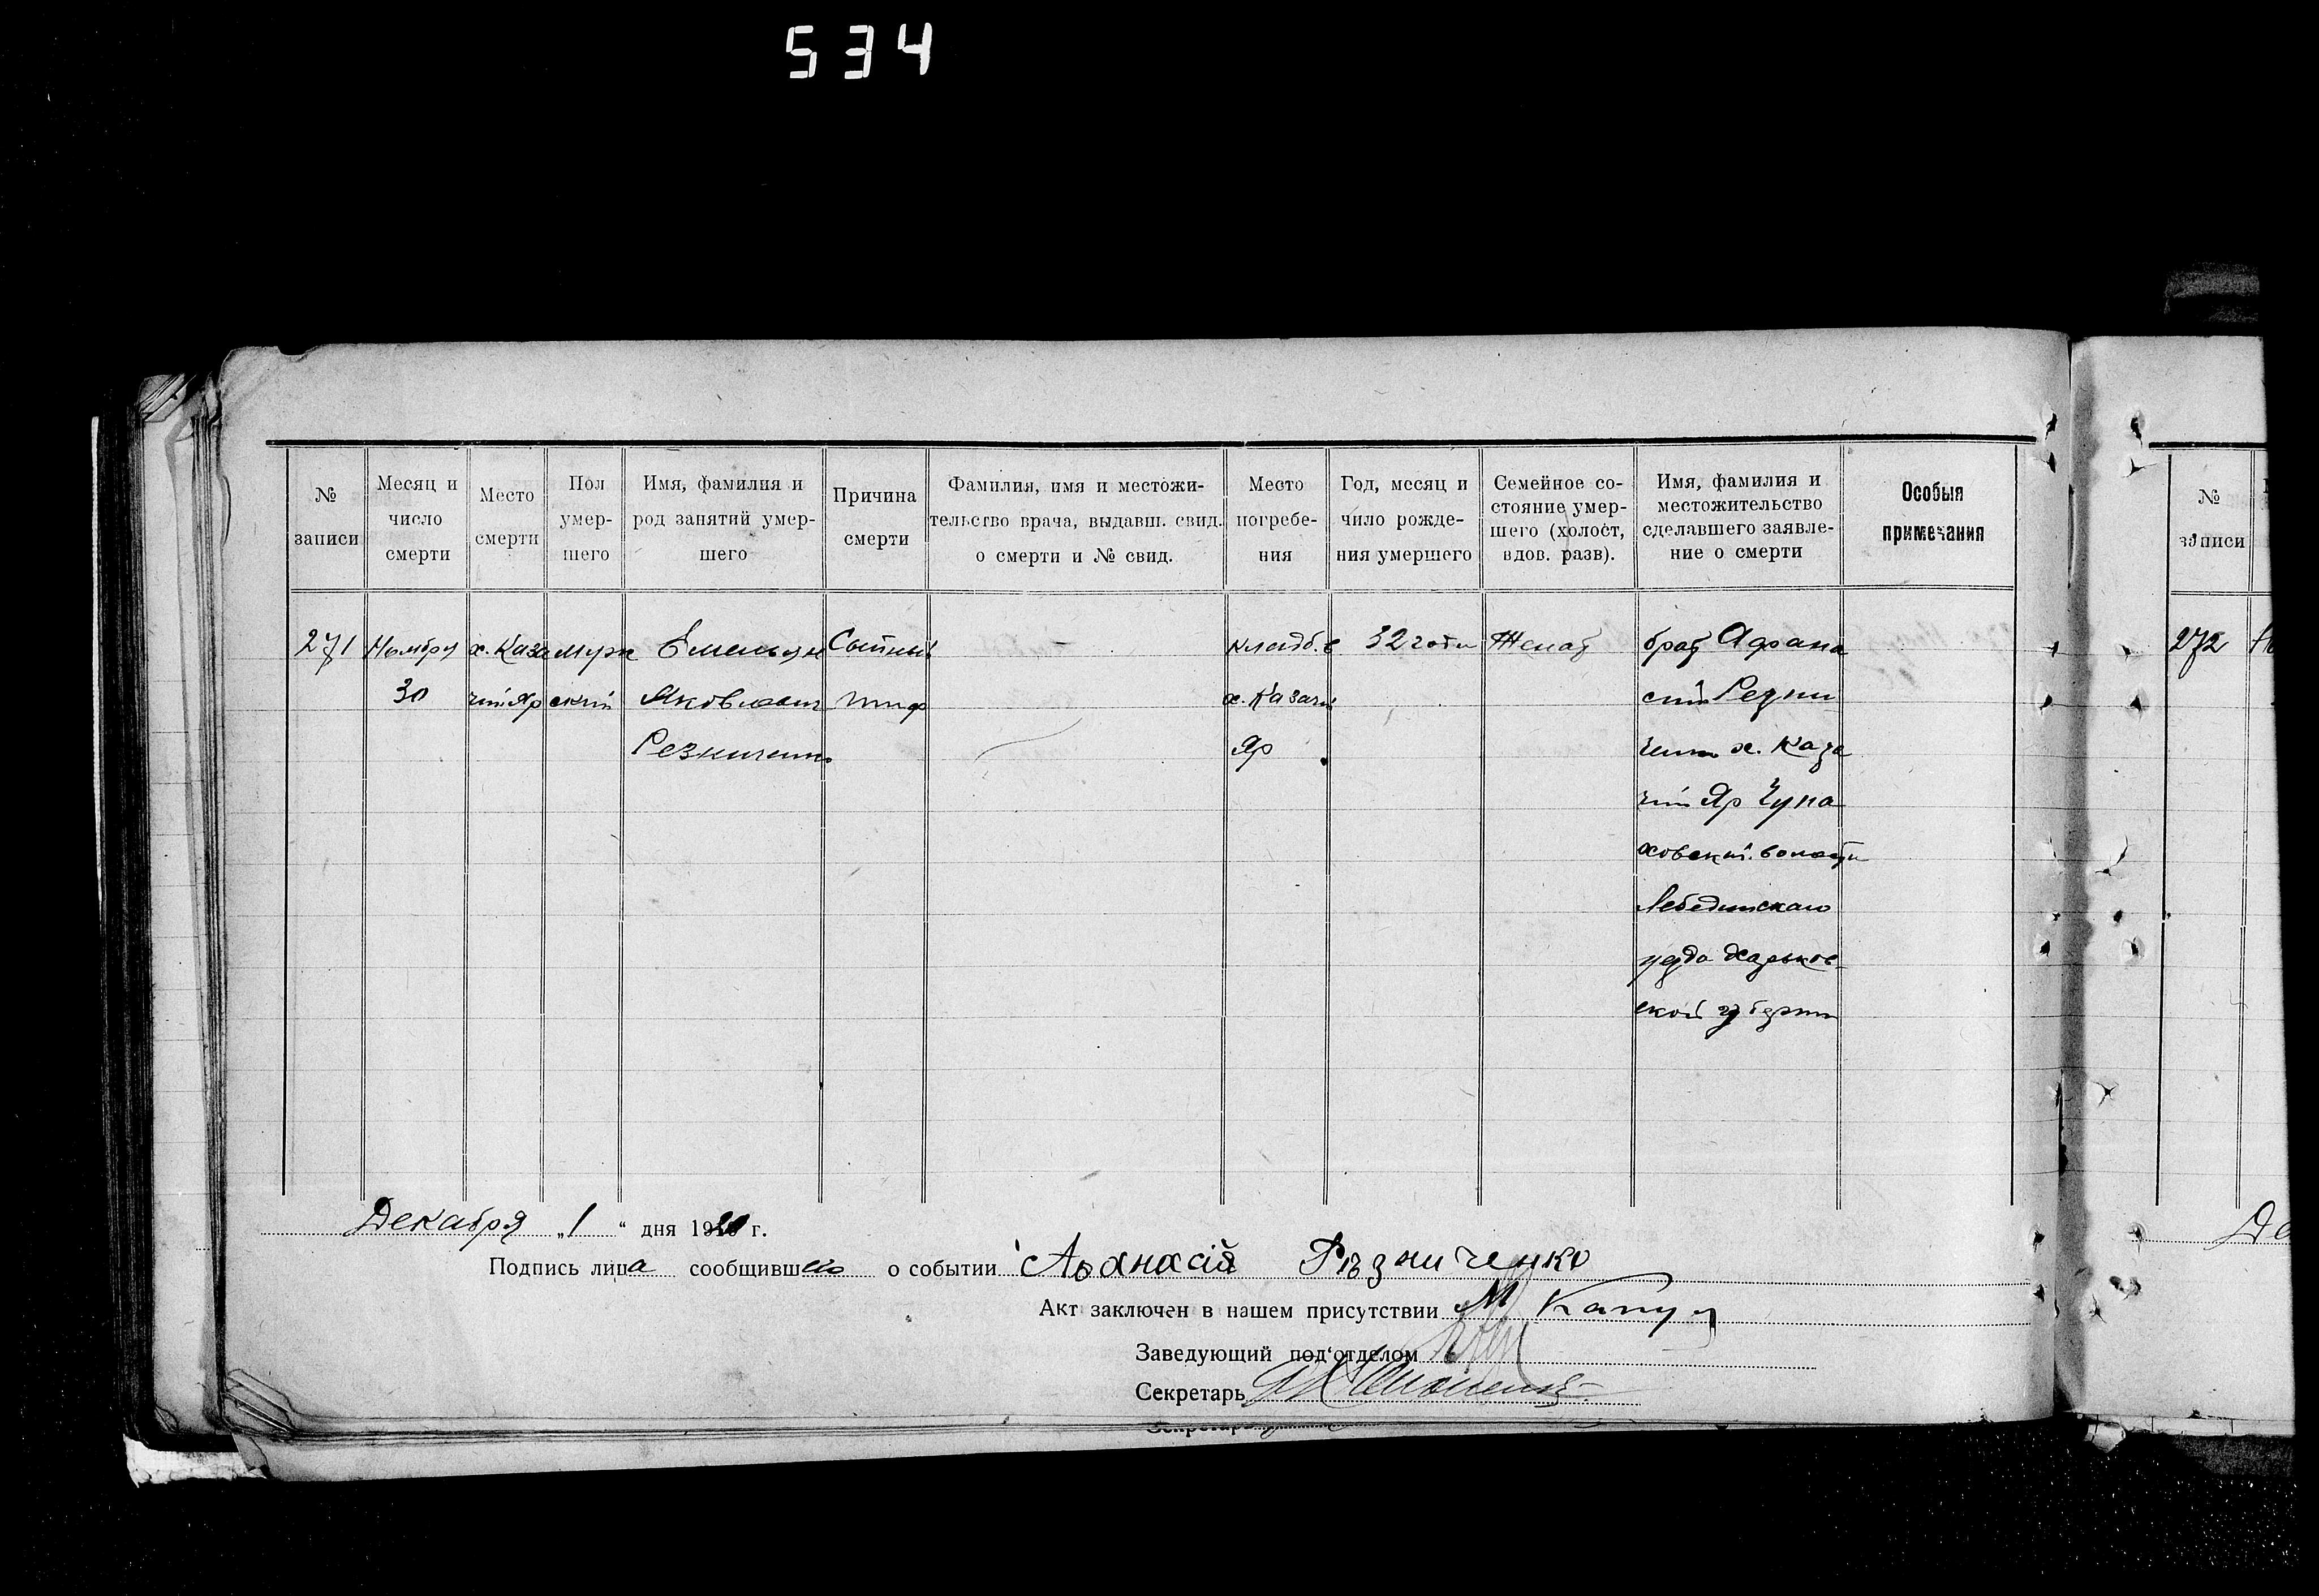 534
№ записи
Месяц и число смерти
Место смерти
Пол умершего
Имя, фамилия и род занятий умершего
Причина смерти
Фамилия, имя и местожительство врача, выдавш. свид. о смерти и № свид.
Место погребения
Год, месяц и чило рождения умершего
Семейное состояние умершего (холост, вдов. разв).
Имя, фамилия и местожительство сделавшего заявление о смерти
Особыя примечания
271
Ноября
30
х. Каза
чий Яр
муж
ский
Емельян
Яковлевич
Резниченко
Сыпный
тиф
-
кладб. в
х. Казачий
Яр
32 годи
Женат
брат Афана
сий Резни
ченко х. Каза
чий Яр Чупа
ховской волости
Лебединскаго
уезда Харьков-
ской губернии
Декабря „1“ дня 1920 г.
Подпись лица сообщившего о событии Аѳанасій Рѣзниченко
Акт заключен в нашем присутствии М
Заведующий под'отделом
Секретарь
№
записи
272
Де